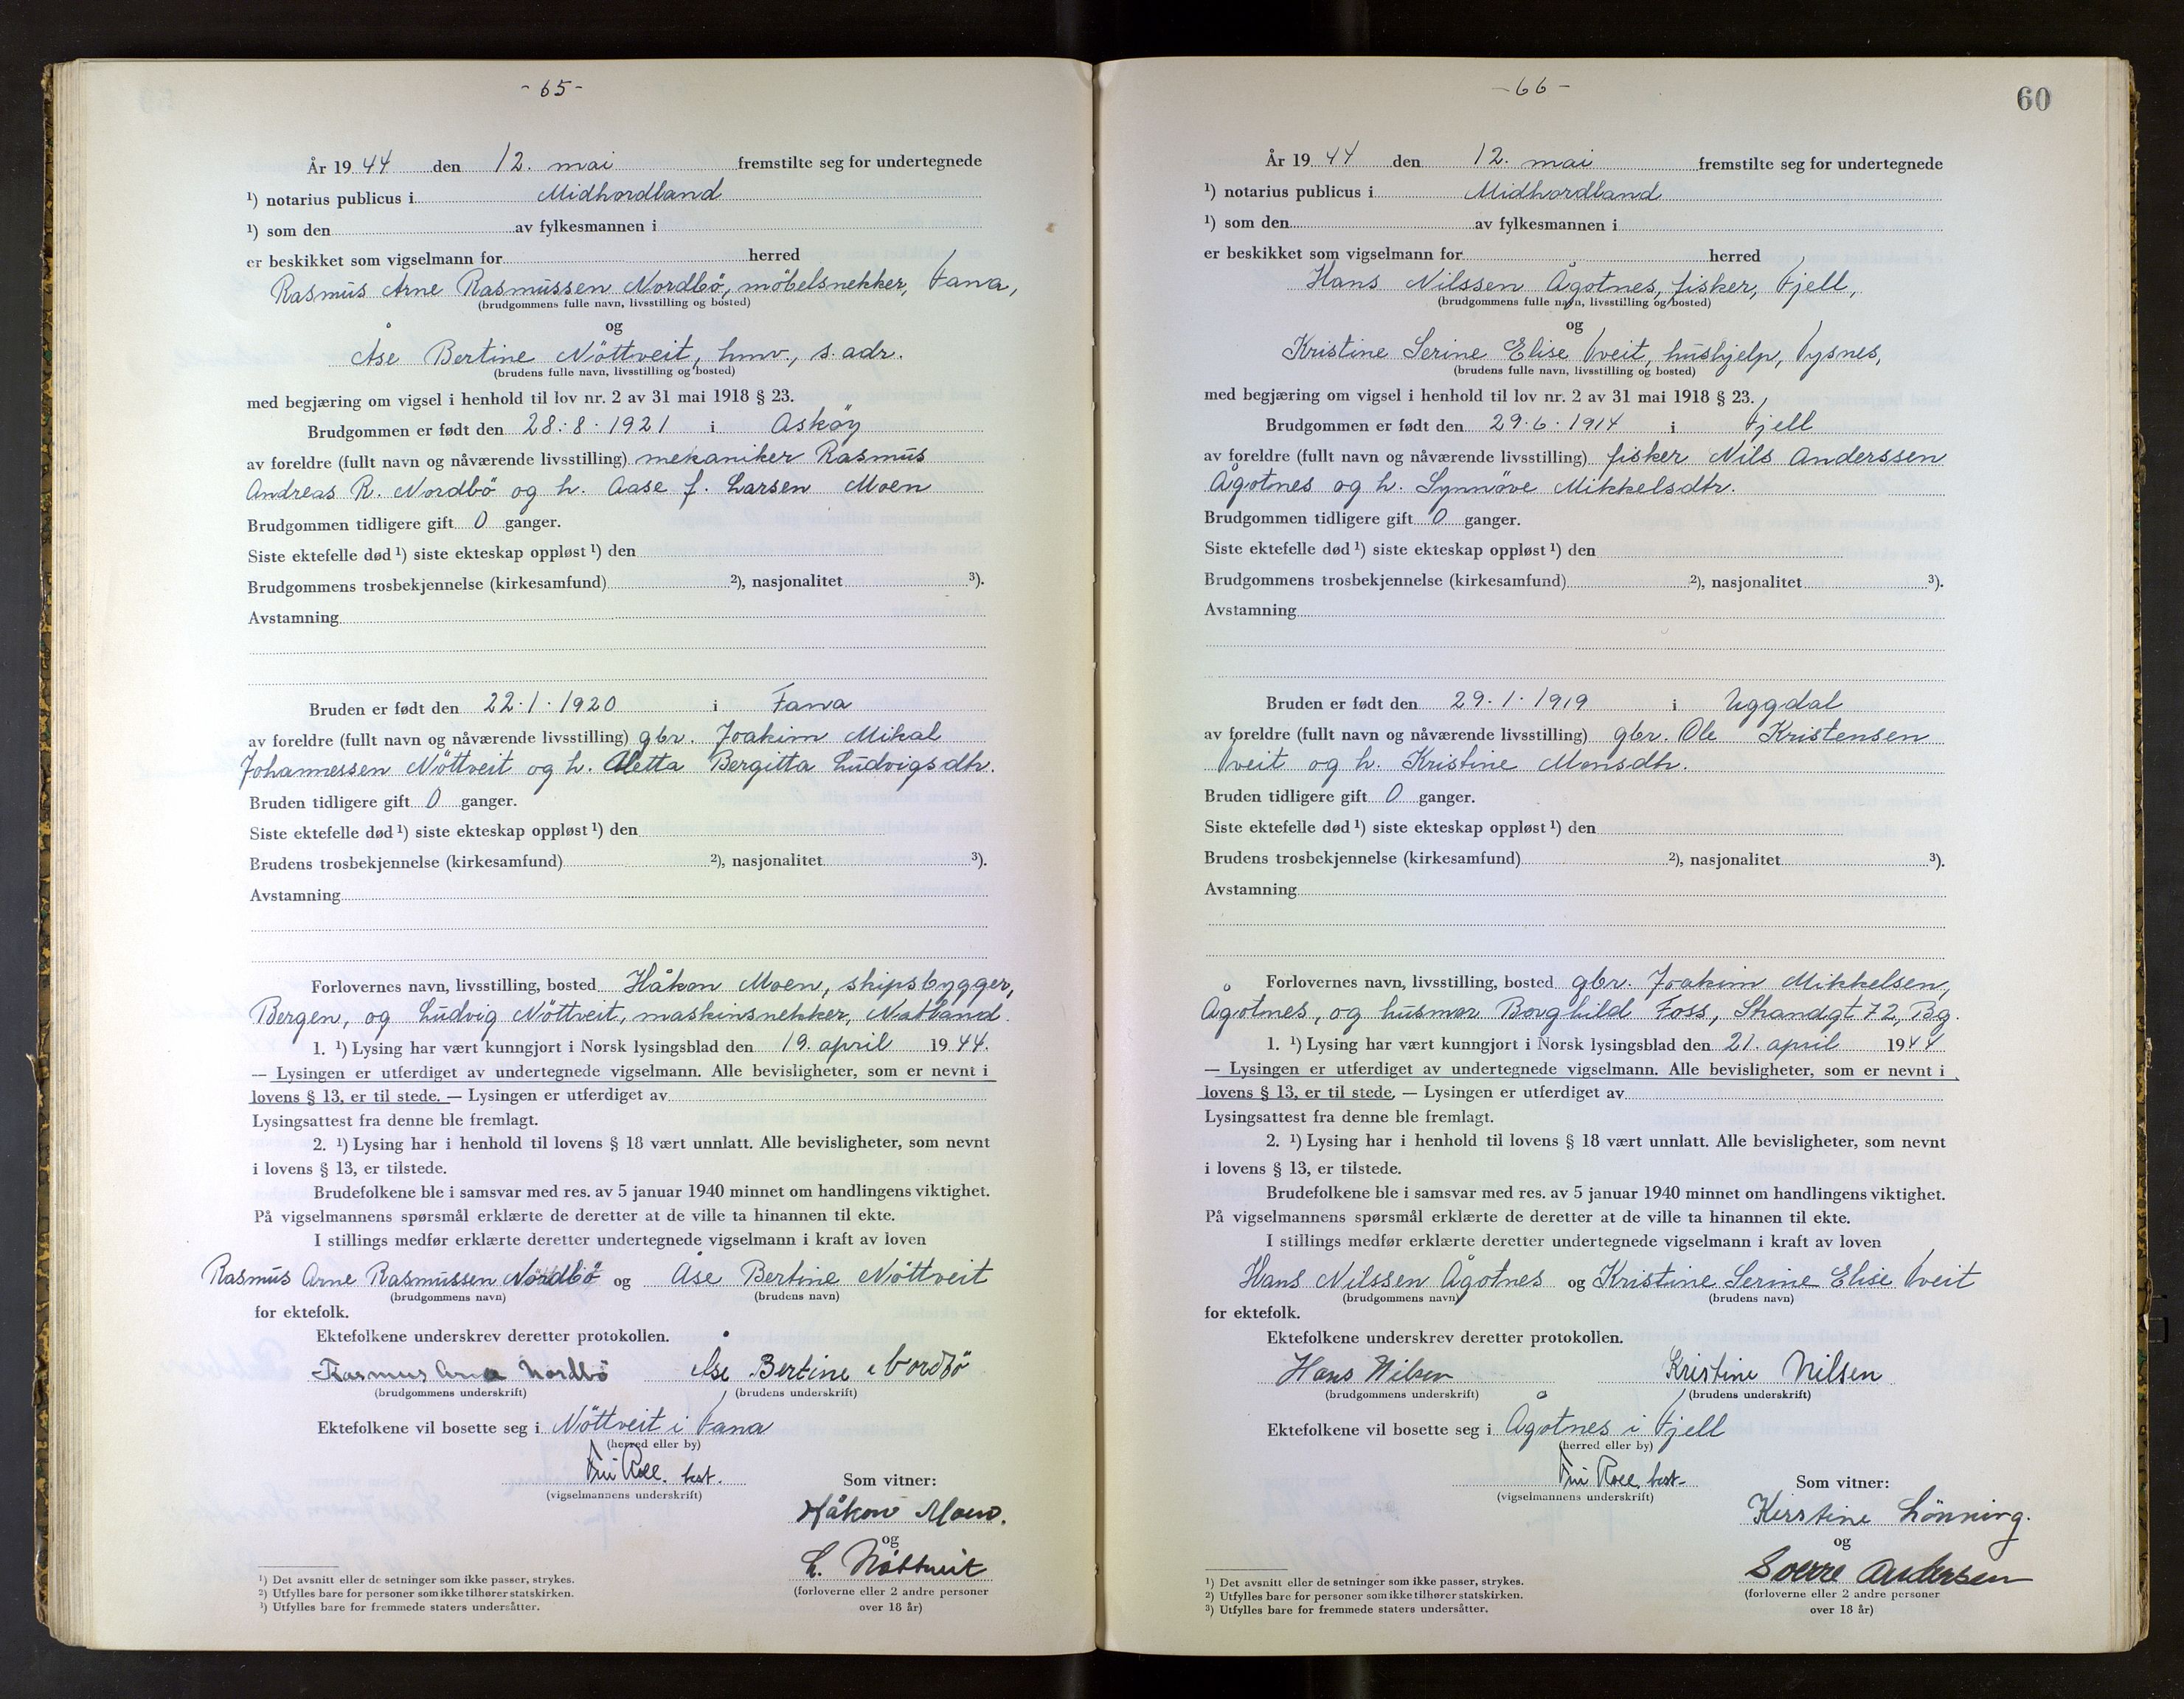 - 65 -
År 1944 den 12. mai fremstilte seg for undertegnede
¹) notarius publicus i Midhordland
¹) som den av fylkesmannen i
er beskikket som vigselmann for herred
Rasmus Arne Rasmussen Nordbö, möbelsnekker, Fana,
(brudgommens fulle navn, livsstilling og bosted)
og
Åse Bertine Nöttveit, hmv., s. adr.
(brudens fulle navn, livsstilling og bosted)
med begjæring om vigsel i henhold til lov nr. 2 av 31 mai 1918 § 23.
Brudgommen er født den 28.8.1921 i Asköy
av foreldre (fullt navn og nåværende livsstilling) mekaniker Rasmus
Andreas R. Nordbö og h. Aase f. Larsen Moen
Brudgommen tidligere gift 0 ganger.
Siste ektefelle død ¹) siste ekteskap oppløst ¹) den
Brudgommens trosbekjennelse (kirkesamfund) ²), nasjonalitet ³).
Avstamning
Bruden er født den 22.1.1920 i Fana
av foreldre (fullt navn og nåværende livsstilling) gbr. Joakim Mikal
Johannessen Nöttveit og h. Aletta Bergitta Ludvigsdtr.
Bruden tidligere gift 0 ganger.
Siste ektefelle død ¹) siste ekteskap oppløst ¹) den
Brudens trosbekjennelse (kirkesamfund) ²), nasjonalitet ³).
Avstamning
Forlovernes navn, livsstilling, bosted Håkon Moen, skipsbygger,
Bergen, og Ludvig Nöttveit, maskinsnekker, Natland.
1. ¹) Lysing har vært kunngjort i Norsk lysingsblad den 19. april 1944.
— Lysingen er utferdiget av undertegnede vigselmann. Alle bevisligheter, som er nevnt i
lovens § 13, er til stede. — Lysingen er utferdiget av
Lysingsattest fra denne ble fremlagt.
2. ¹) Lysing har i henhold til lovens § 18 vært unnlatt. Alle bevisligheter, som nevnt
i lovens § 13, er tilstede.
Brudefolkene ble i samsvar med res. av 5 januar 1940 minnet om handlingens viktighet.
På vigselmannens spørsmål erklærte de deretter at de ville ta hinannen til ekte.
I stillings medfør erklærte deretter undertegnede vigselmann i kraft av loven
Rasmus Arne Rasmussen Nordbö og Åse Bertine Nöttveit
(brudgommens navn) (brudens navn)
for ektefolk.
Ektefolkene underskrev deretter protokollen.
Rasmus Arne Nordbö Åse Bertine Nordbö
(brudgommens underskrift) (brudens underskrift)
Ektefolkene vil bosette seg i Nöttveit i Fana
(herred eller by)
Roll, best.
(vigselmannens underskrift)
Som vitner:
Håkon Moen.
og
L. Nöttveit
(forloverne eller 2 andre personer
over 18 år)
¹) Det avsnitt eller de setninger som ikke passer, strykes.
²) Utfylles bare for personer som ikke tilhører statskirken.
³) Utfylles bare for fremmede staters undersåtter.
- 66 -
60
År 1944 den 12. mai fremstilte seg for undertegnede
¹) notarius publicus i Midhordland
¹) som den av fylkesmannen i
er beskikket som vigselmann for herred
Hans Nilssen Ågotnes, fisker, Fjell,
(brudgommens fulle navn, livsstilling og bosted)
og
Kristine Serine Elise Tveit, hushjelp, Tysnes,
(brudens fulle navn, livsstilling og bosted)
med begjæring om vigsel i henhold til lov nr. 2 av 31 mai 1918 § 23.
Brudgommen er født den 29.6.1914 i Fjell
av foreldre (fullt navn og nåværende livsstilling) fisker Nils Anderssen
Ågotnes og h. Synnöve Mikkelsdtr.
Brudgommen tidligere gift 0 ganger.
Siste ektefelle død ¹) siste ekteskap oppløst ¹) den
Brudgommens trosbekjennelse (kirkesamfund) ²), nasjonalitet ³).
Avstamning
Bruden er født den 29.1.1919 i Uggdal
av foreldre (fullt navn og nåværende livsstilling) gbr. Ole Kristensen
Tveit og h. Kristine Monsdtr.
Bruden tidligere gift 0 ganger.
Siste ektefelle død ¹) siste ekteskap oppløst ¹) den
Brudens trosbekjennelse (kirkesamfund) ²), nasjonalitet ³).
Avstamning
Forlovernes navn, livsstilling, bosted gbr. Joakim Mikkelsen,
Ågotnes, og husmor Borghild Foss, Strandgt 72, Bg.
1. ¹) Lysing har vært kunngjort i Norsk lysingsblad den 21. april 1944
— Lysingen er utferdiget av undertegnede vigselmann. Alle bevisligheter, som er nevnt i
lovens § 13, er til stede, — Lysingen er utferdiget av
Lysingsattest fra denne ble fremlagt.
2. ¹) Lysing har i henhold til lovens § 18 vært unnlatt. Alle bevisligheter, som nevnt
i lovens § 13, er tilstede.
Brudefolkene ble i samsvar med res. av 5 januar 1940 minnet om handlingens viktighet.
På vigselmannens spørsmål erklærte de deretter at de ville ta hinannen til ekte.
I stillings medfør erklærte deretter undertegnede vigselmann i kraft av loven
Hans Nilssen Ågotnes og Kristine Serine Elise Tveit
(brudgommens navn) (brudens navn)
for ektefolk.
Ektefolkene underskrev deretter protokollen.
Hans Nilsen Kristine Nilsen
(brudgommens underskrift) (brudens underskrift)
Ektefolkene vil bosette seg i Ågotnes i Fjell
(herred eller by)
Roll, best.
(vigselmannens underskrift)
Som vitner:
Kirstine Lönning.
og
Sverre Andersen
(forloverne eller 2 andre personer
over 18 år)
¹) Det avsnitt eller de setninger som ikke passer, strykes.
²) Utfylles bare for personer som ikke tilhører statskirken.
³) Utfylles bare for fremmede staters undersåtter.